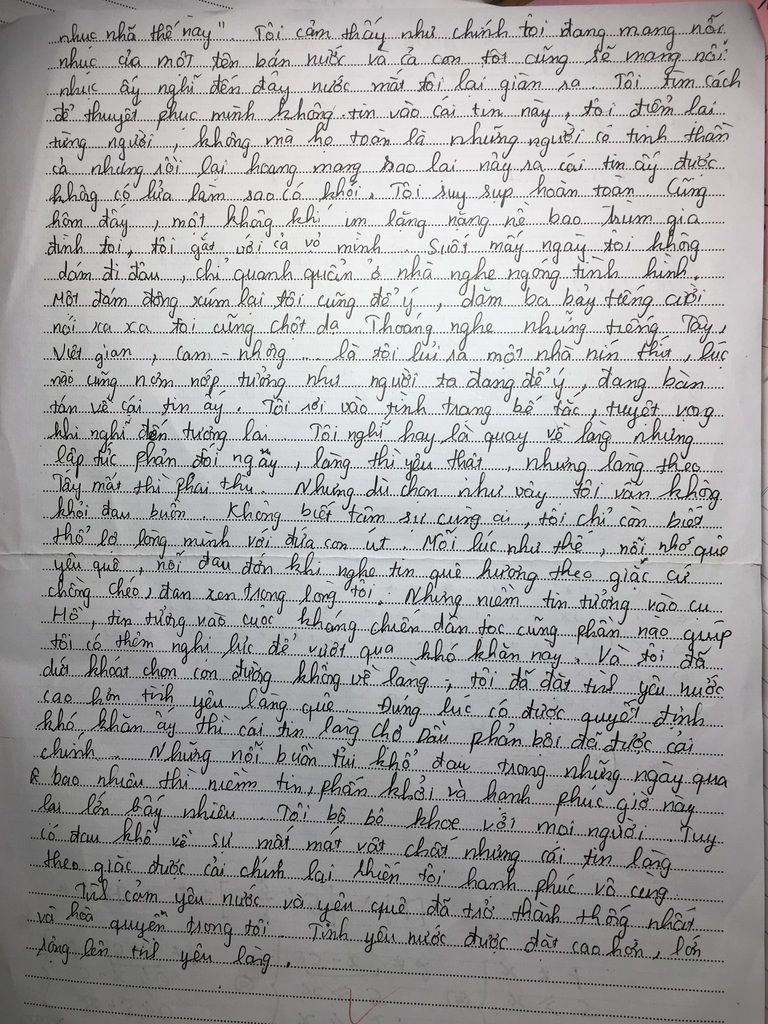 nhục nhã thế này". Tôi cảm thấy như chính tôi đang mang nỗi
nhục của một tên bán nước và cả con tôi cũng sẽ mang nỗi
nhục ấy nghĩ đến đây nước mắt tôi lại giàn ra. Tôi tìm cách
để thuyết phục mình không tin vào cái tin này, tôi điểm lại
từng người, không mà họ toàn là những người có tinh thần
cả nhưng rồi lại hoang mang sao lại nảy ra cái tin ấy được
không có lửa làm sao có khói. Tôi suy sụp hoàn toàn. Cũng
hôm đấy, một không khí im lặng nặng nề bao trùm gia
đình tôi, tôi gắt với cả vỏ mình. Suốt mấy ngày tôi không
dám đi đâu, chỉ quanh quẩn ở nhà nghe ngóng tình hình.
Một đám đông xúm lại tôi cũng để ý, dăm ba bảy tiếng cười
nói xa xa tôi cũng chột dạ. Thoáng nghe những tiếng Tây,
Việt gian, cam - nhông... là tôi lủi ra một nhà nín thít, lúc
nào cũng nơm nớp tưởng như người ta đang để ý, đang bàn
tán về cái tin ấy. Tôi rơi vào tình trạng bế tắc, tuyệt vọng
khi nghĩ đến tương lai. Tôi nghĩ hay là quay về làng nhưng
lập tức phản đối ngay, làng thì yêu thật, nhưng làng theo
Tây mất thì phải thù. Nhưng dù chọn như vậy tôi vẫn không
khỏi đau buồn. Không biết tâm sự cùng ai, tôi chỉ còn biết
thổ lộ lòng mình với đứa con út. Mỗi lúc như thế, nỗi nhớ quê
yêu quê, nỗi đau đớn khi nghe tin quê hương theo giặc cứ
chồng chéo, đan xen trong lòng tôi. Nhưng niềm tin tưởng vào cụ
Hồ, tin tưởng vào cuộc kháng chiến dân tộc cũng phần nào giúp
tôi có thêm nghị lực để vượt qua khó khăn này. Và tôi đã
dứt khoát chọn con đường không về làng, tôi đã đặt tình yêu nước
cao hơn tình yêu làng quê. Đúng lúc có được quyết định
khó khăn ấy thì cái tin làng chợ Dầu phản bội đã được cải
chính. Những nỗi buồn tủi khổ đau trong những ngày qua
bao nhiêu thì niềm tin, phấn khởi và hạnh phúc giờ này
lại lớn bấy nhiêu. Tôi bô bô khoe với mọi người. Tuy
có đau khổ về sự mất mát vật chất nhưng cái tin làng
theo giặc được cải chính lại khiến tôi hạnh phúc vô cùng
Tình cảm yêu nước và yêu quê đã trở thành thống nhất
và hoà quyện trong tôi. Tình yêu nước được đặt cao hơn, lớn
rộng lên tình yêu làng.